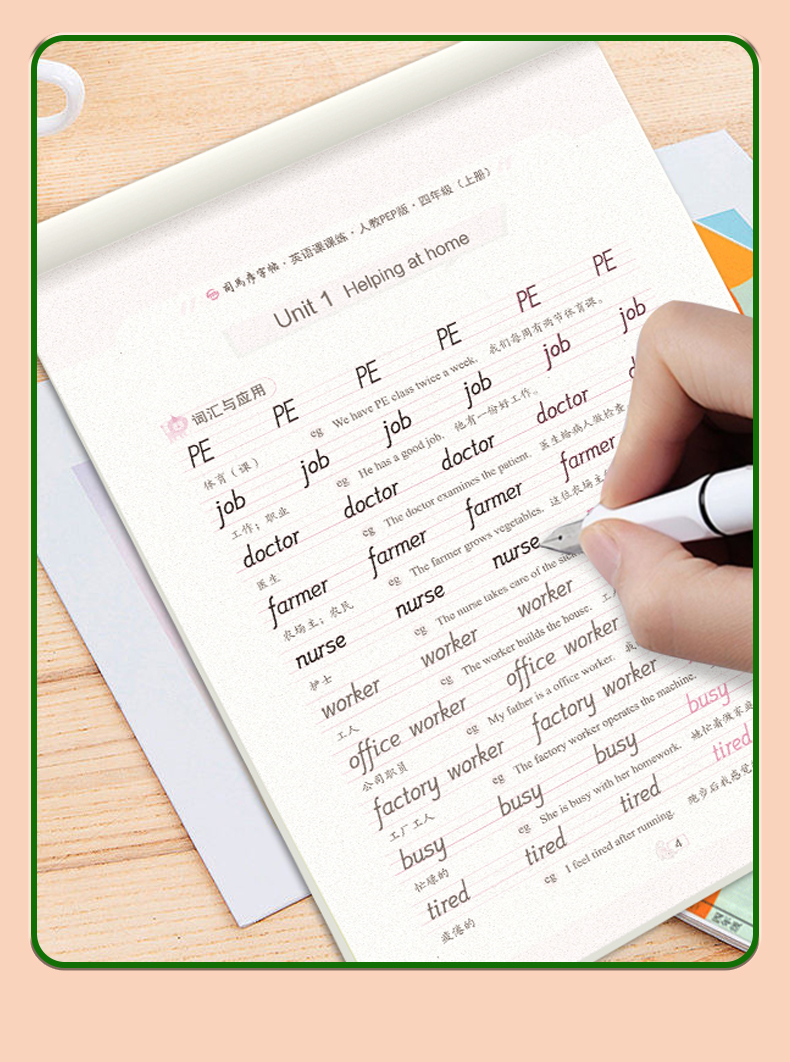 司马彦字帖·英语课课练·人教PEP版·四年级（上册）
Unit 1 Helping at home
词汇与应用
PE PE PE PE PE PE
体育（课） eg We have PE class twice a week. 我们每周有两节体育课。
job job job job job job
工作；职业 eg He has a good job. 他有一份好工作。
doctor doctor doctor doctor d
医生 eg The doctor examines the patient. 医生给病人做检查
farmer farmer farmer farmer
农场主；农民 eg The farmer grows vegetables. 这位农场主
nurse nurse nurse
护士 eg The nurse takes care of the sick
worker worker worker
工人 eg The worker builds the house. 工
office worker office worker
公司职员 eg My father is a office worker. 我
factory worker factory worker
工厂工人 eg The factory worker operates the machine.
busy busy busy busy
忙碌的 eg She is busy with her homework. 她忙着做家庭
tired tired tired tired
疲倦的 eg I feel tired after running. 跑步后我感觉
4